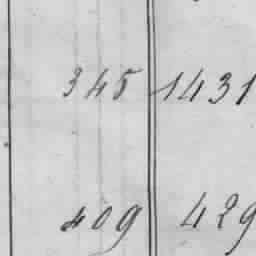 345 1431
409 429